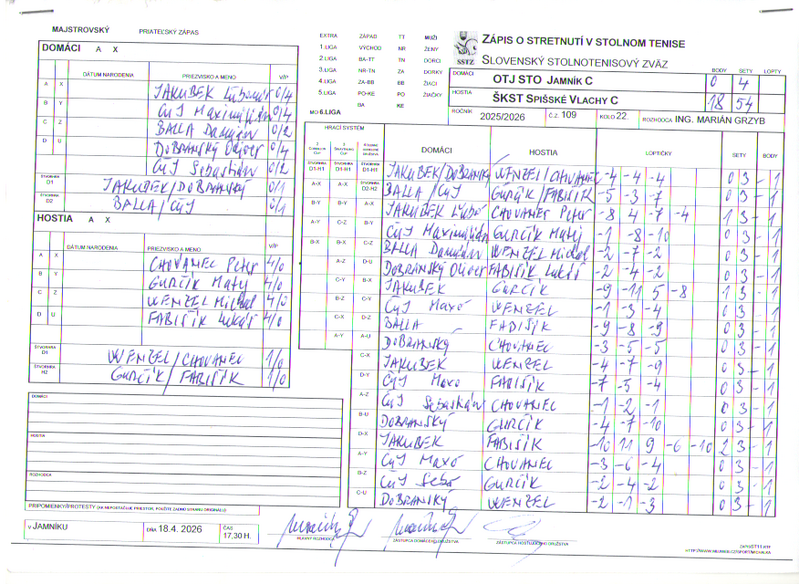 MAJSTROVSKÝ PRIATEĽSKÝ ZÁPAS
DOMÁCI A X
DÁTUM NARODENIA PRIEZVISKO A MENO V/P
A X JAKUBEK Ľubomír 0/4
B Y ČUJ Maximilián 0/4
C Z BALLA Damián 0/2
D U DOBRANSKÝ Oliver 0/4
ČUJ Sebastián 0/2
ŠTVORHRA D1 JAKUBEK/DOBRANSKÝ 0/1
ŠTVORHRA D2 BALLA/ČUJ 0/1
HOSTIA A X
DÁTUM NARODENIA PRIEZVISKO A MENO V/P
A X CHOVANEC Peter 4/0
B Y GURČÍK Matej 4/0
C Z WENZEL Michal 4/0
D U FABIŠÍK Lukáš 4/0
ŠTVORHRA D1 WENZEL/CHOVANEC 1/0
ŠTVORHRA H2 GURČÍK/FABIŠÍK 1/0
DOMÁCI
HOSTIA
ROZHODCA
PRIPOMIENKY/PROTESTY
V JAMNÍKU DŇA 18.4. 2026 ČAS 17.30 H.
EXTRA ZÁPAD TT MUŽI
1.LIGA VÝCHOD NR ŽENY
2.LIGA BA-TT TN DORCI
3.LIGA NR-TN ZA DORKY
4.LIGA ZA-BB BB ŽIACI
5.LIGA PO-KE PO ŽIAČKY
MO 6.LIGA BA KE
SSTZ
ZÁPIS O STRETNUTÍ V STOLNOM TENISE
SLOVENSKÝ STOLNOTENISOVÝ ZVÄZ
BODY SETY LOPTY
DOMÁCI OTJ STO JAMNÍK C 0 4
HOSTIA ŠKST SPIŠSKÉ VLACHY C 18 54
ROČNÍK 2025/2026 Č.Z. 109 KOLO 22 ROZHODCA ING. MARIÁN GRZYB
HRACÍ SYSTÉM DOMÁCI HOSTIA LOPTIČKY SETY BODY
JAKUBEK/DOBRANSKÝ WENZEL/CHOVANEC -4 -4 -4 0 3 - 1
BALLA/ČUJ GURČÍK/FABIŠÍK -5 -3 -7 0 3 - 1
JAKUBEK Ľuboš CHOVANEC Peter -8 4 -7 -4 1 3 - 1
ČUJ Maximilián GURČÍK Matej -1 -8 -10 0 3 - 1
BALLA Damián WENZEL Michal -2 -7 -2 0 3 - 1
DOBRANSKÝ Oliver FABIŠÍK Lukáš -2 -4 -2 0 3 - 1
JAKUBEK GURČÍK -9 -11 5 -8 1 3 - 1
ČUJ Maxo WENZEL -1 -3 -4 0 3 - 1
BALLA FABIŠÍK -9 -8 -9 0 3 - 1
DOBRANSKÝ CHOVANEC -3 -5 -5 0 3 - 1
JAKUBEK WENZEL -4 -7 -9 0 3 - 1
ČUJ Maxo FABIŠÍK -7 -3 -4 0 3 - 1
ČUJ Sebastián CHOVANEC -1 -2 -1 0 3 - 1
DOBRANSKÝ GURČÍK -4 -7 -10 0 3 - 1
JAKUBEK FABIŠÍK -10 11 9 -6 -10 2 3 - 1
ČUJ Maxo CHOVANEC -3 -6 -4 0 3 - 1
ČUJ Sebo GURČÍK -2 -4 -2 0 3 - 1
DOBRANSKÝ WENZEL -2 -1 -3 0 3 - 1
HLAVNÝ ROZHODCA
ZÁSTUPCA DOMÁCEHO DRUŽSTVA
ZÁSTUPCA HOSŤUJÚCEHO DRUŽSTVA